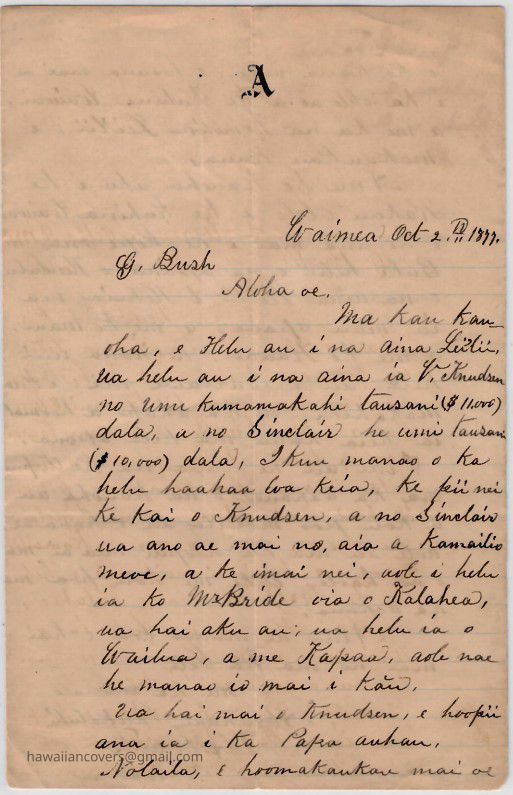 A
Waimea Oct 2.nd 1877.
G. Bush
Aloha oe.
Ma kau kau-
oha, e Helu au i na aina Leiii,
ua helu au i na aina ia V. Knudsen
no umi kumamakahi tausani ($11,000)
dala, a no Sinclair he umi tausani
($10,000) dala, I kuu manao o ka
helu haahaa loa keia, ke pii nei
ke kai o Knudsen, a no Sinclair
ua ano ae mai no, aia a kamailio
a ke imai nei, aole i helu
ia ko McBride oia o Kalahea,
ua hai aku au; ua helu ia o
Wailua, a me Kapaa, aole nae
he manao io mai i kău.
Ua hai mai o Knudsen, e hoopii
ana ia i ka Papa auhau,
Nolaila, e hoomakaukau mai oe
hawaiiancovers@gmail.com